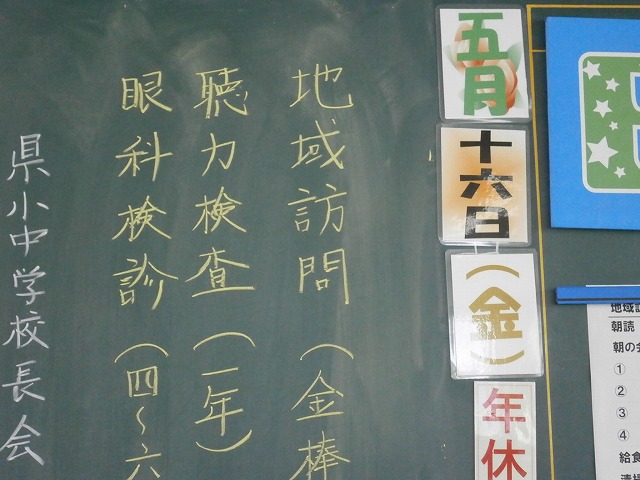 五月
十六日
（金）
年休
地域訪問（金棒
聴力検査（一年）
眼科検診（四～六
県小中学校長会
朝読
朝の会
①
②
③
④
給食